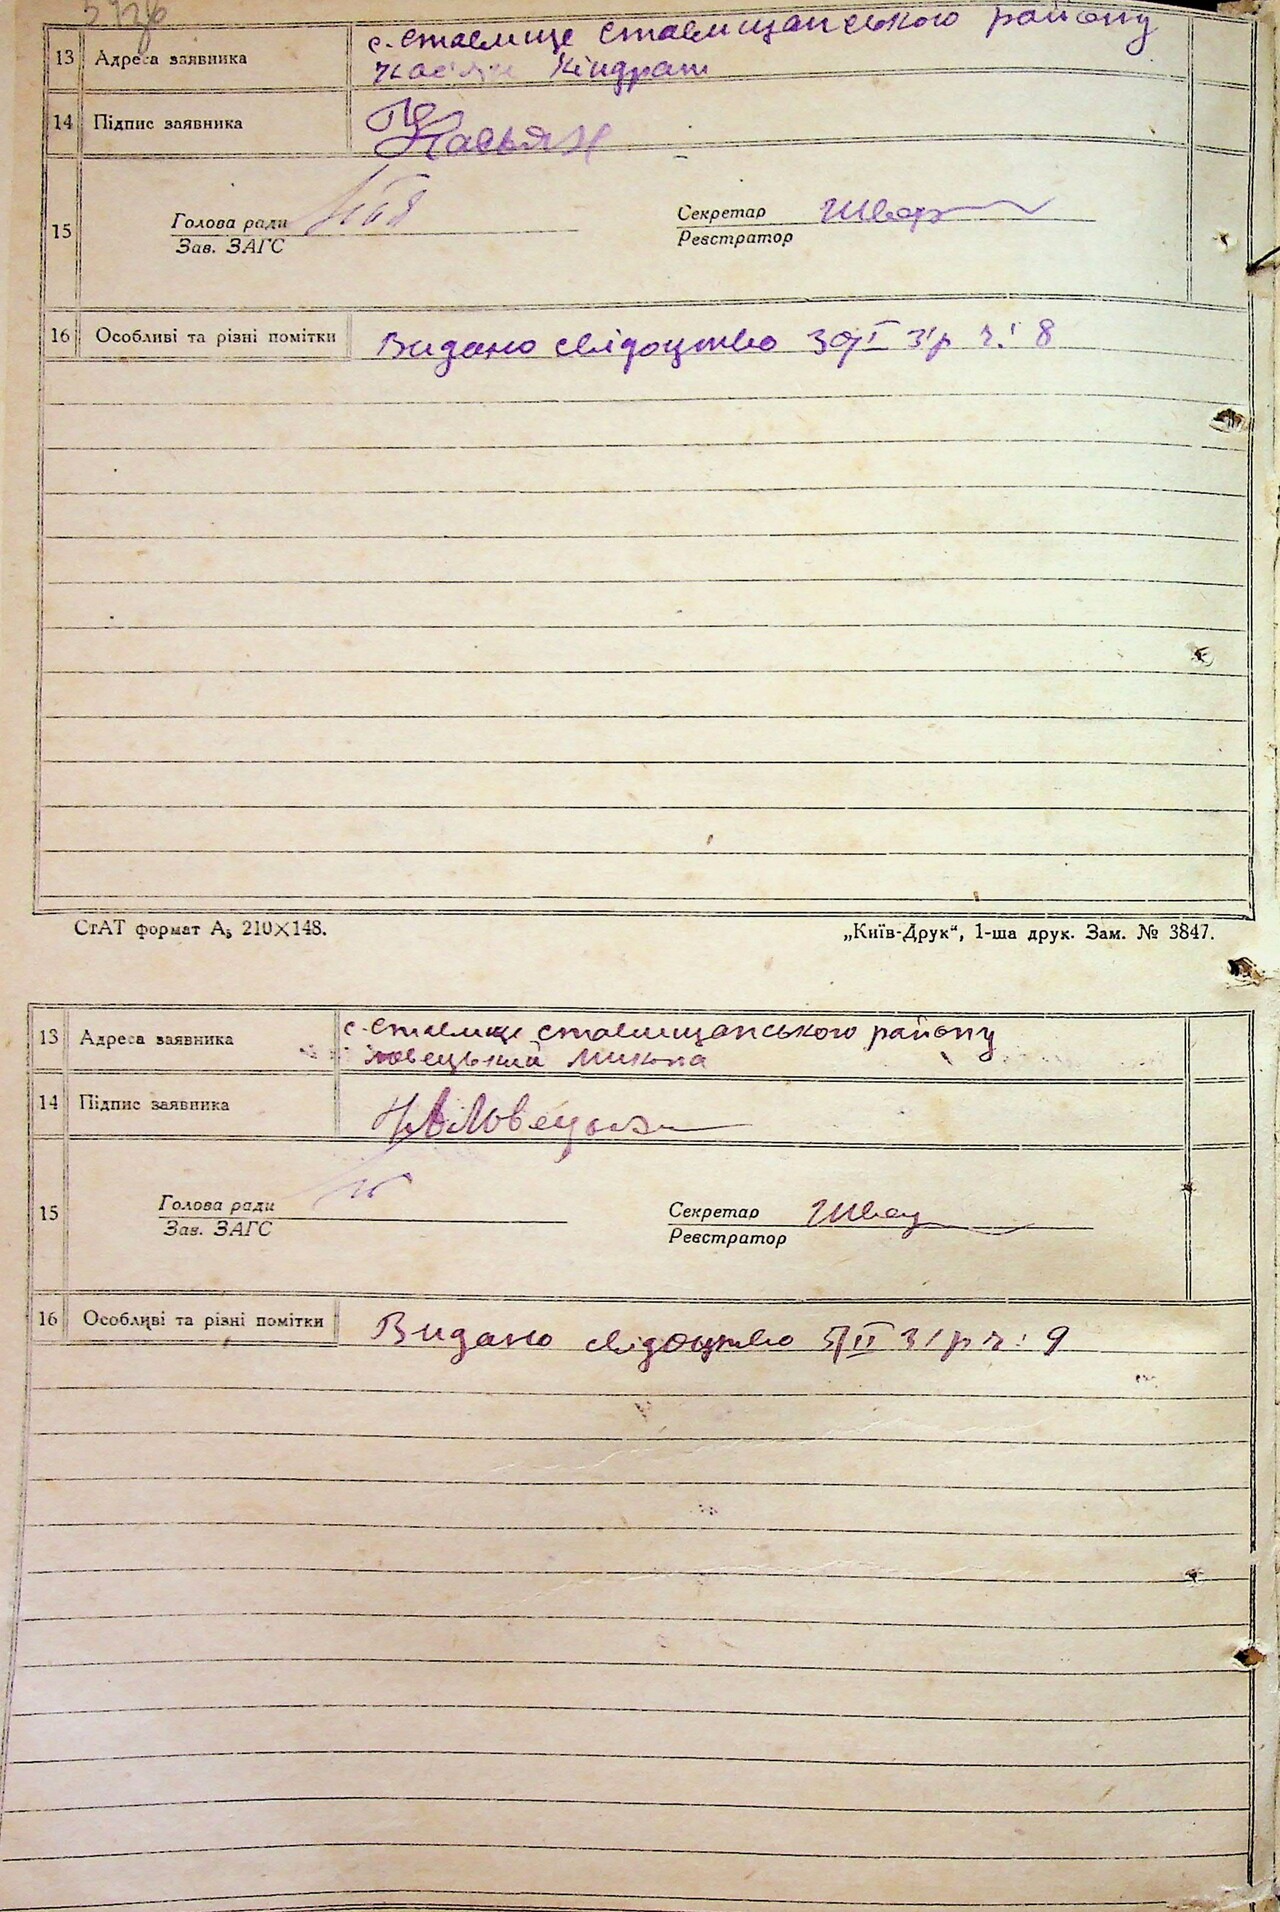 13 Адреса заявника с. Ставище Ставищанського району
Касян Кіндрат
14 Підпис заявника Касьян
15 Голова ради
Зав. ЗАГС
Секретар Швар
Реєстратор
16 Особливі та різні помітки Видано свідоцтво 30/I 31р ч: 8
СтАТ формат А₅ 210×148.
„Київ-Друк“, 1-ша друк. Зам. № 3847.
13 Адреса заявника с. Ставище Ставищанського району
Ловецький Микола
14 Підпис заявника
15 Голова ради
Зав. ЗАГС
Секретар
Реєстратор
16 Особливі та різні помітки Видано свідоцтво 5/II 31р ч: 9